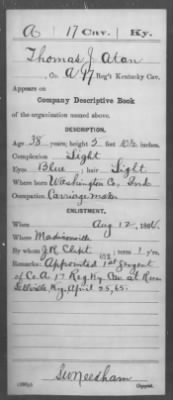 A 17 Cav. Ky.
Thomas J. Atan
, Co. A, 17 Reg't Kentucky Cav.
Appears on
Company Descriptive Book
of the organization named above.
DESCRIPTION.
Age 38 years; height 5 feet inches.
Complexion Light
Eyes Blue; hair Light
Where born Washington Co, Ind
Occupation Carriage maker
ENLISTMENT.
When Aug 12, 1864.
Where Madisonville
By whom J.R. Clept; term 1 y'rs.
Remarks: Appointed 1st Sergent
of Co A 17 Reg Ky Cav at Russ
ellville, Ky, April 25, 65.
Needham
Copyist.